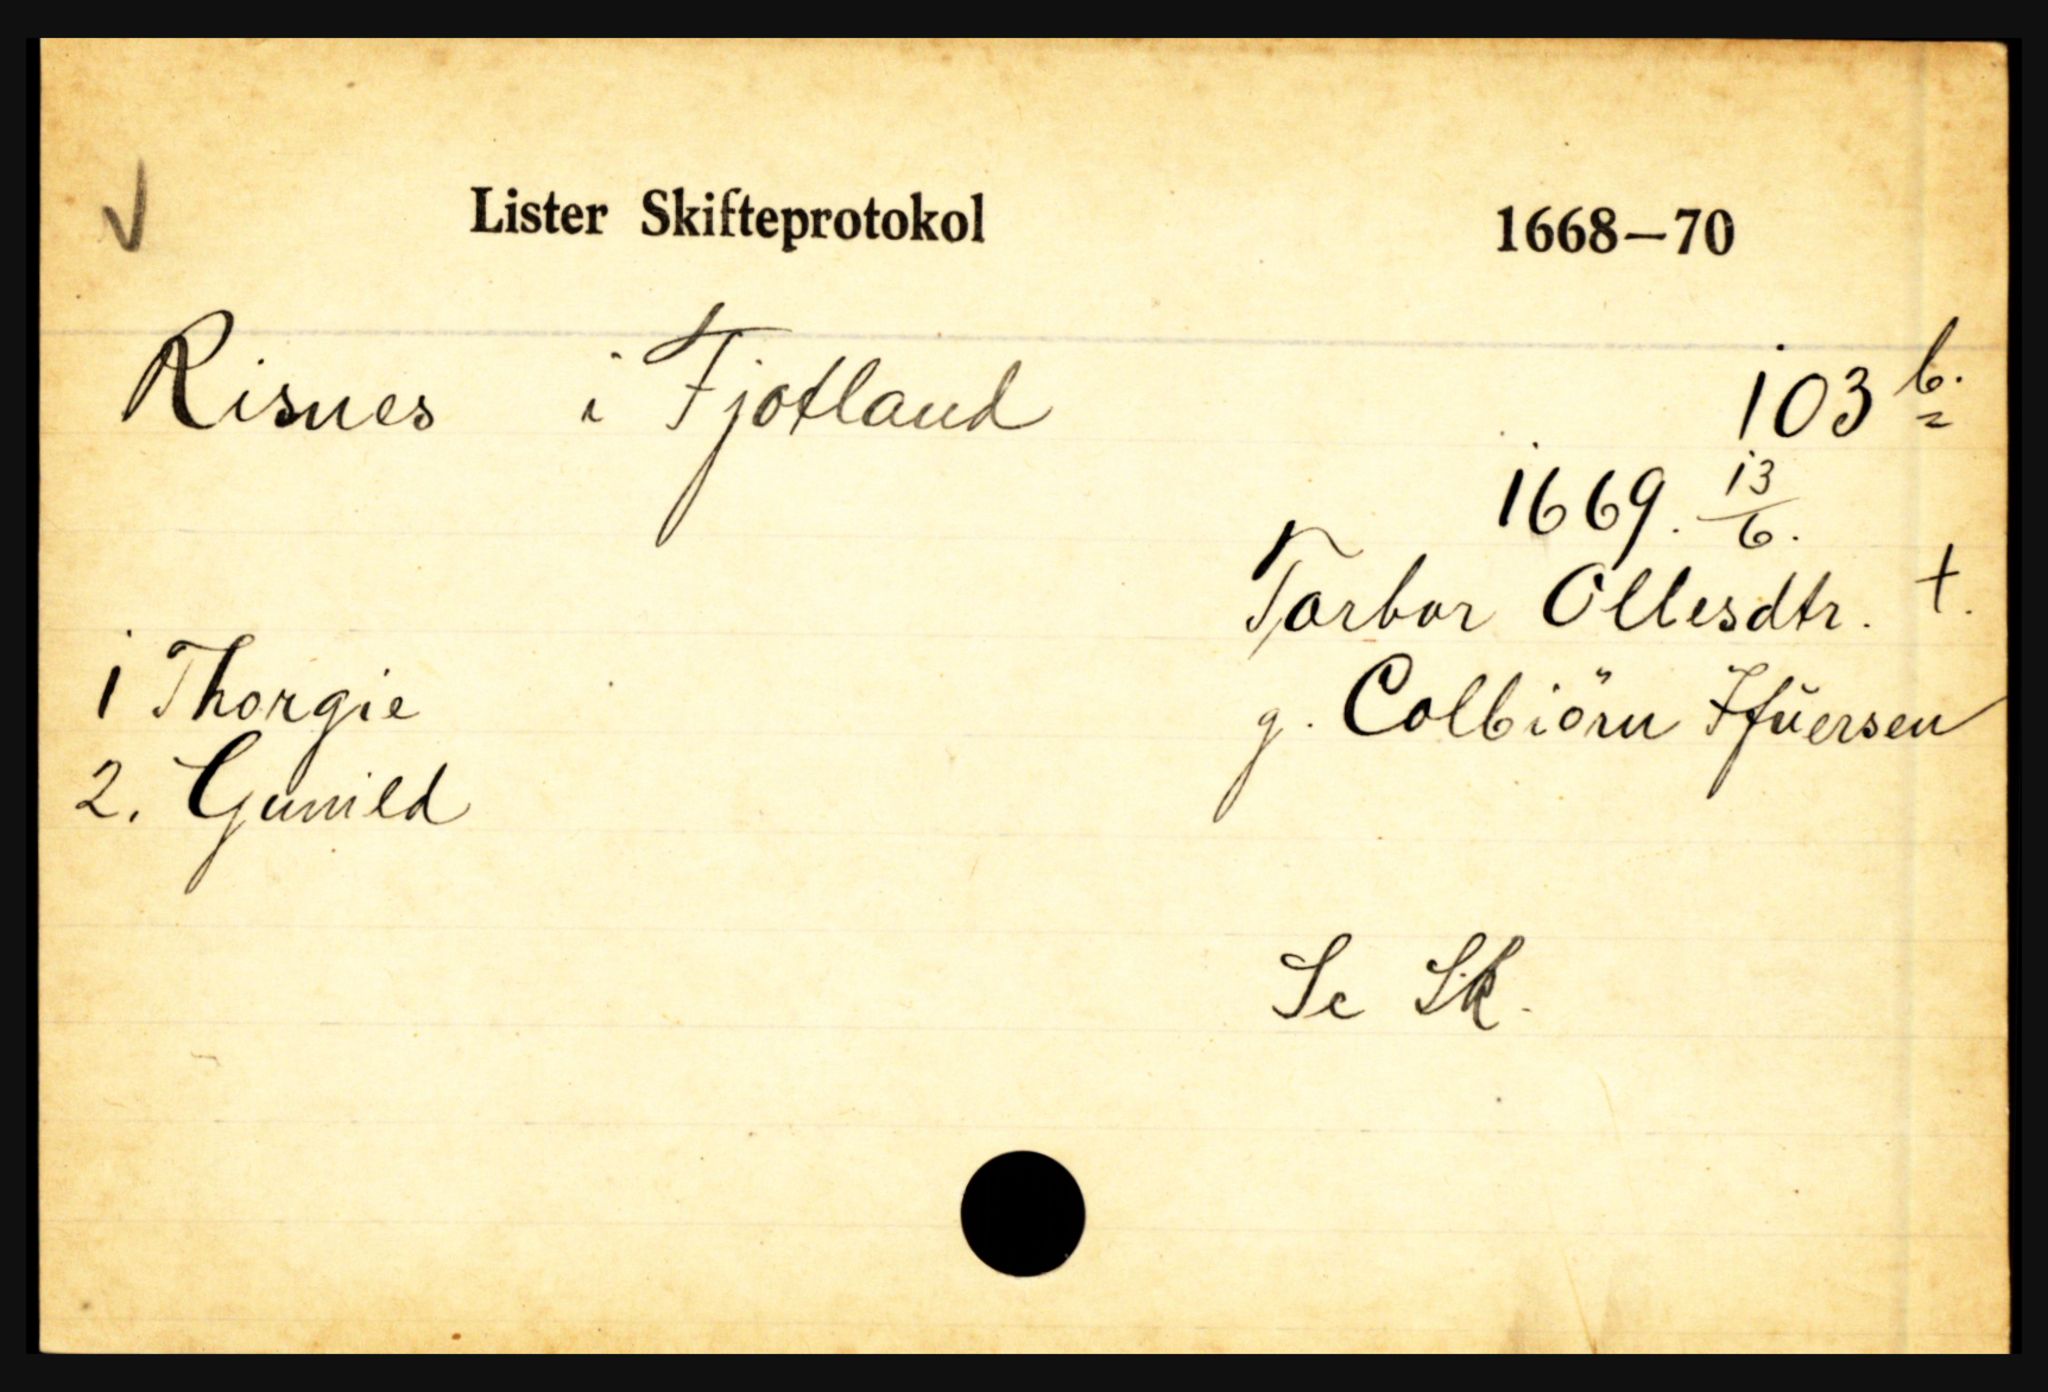 Lister Skifteprotokol 1668—70
Risnes i Fjotland 103 b.
1669. 13/6.
Torbor Ollesdtr. †.
1 Thorgie g. Colbiörn Ifŭersen
2. Gunild
Se Sk.